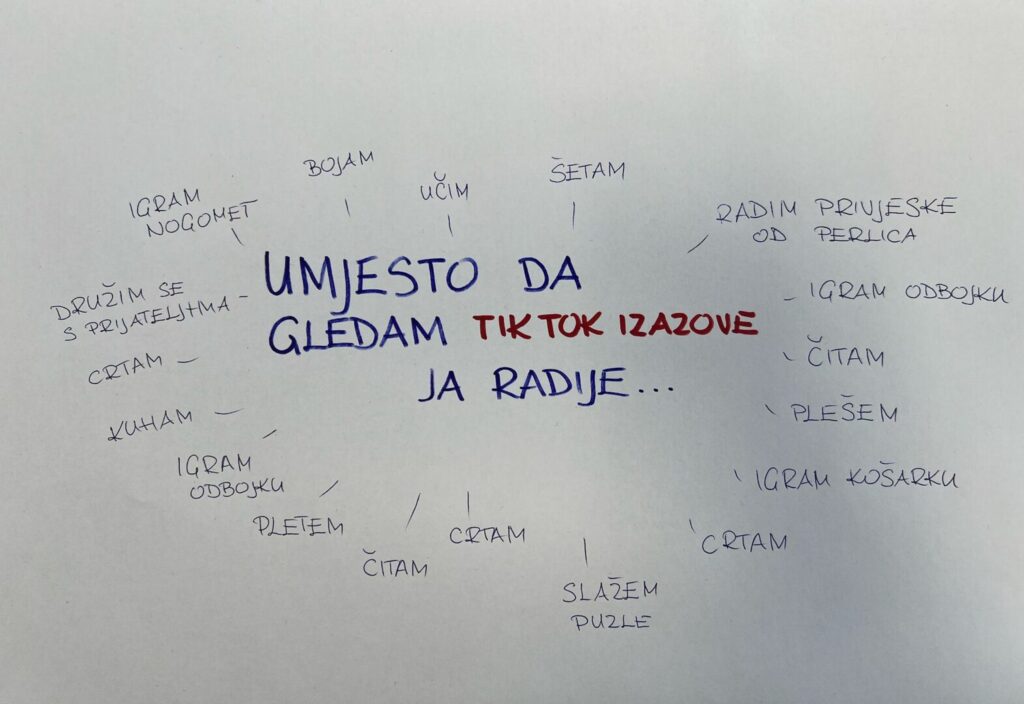 BOJAM
UČIM
ŠETAM
IGRAM
NOGOMET
RADIM PRIVJESKE
OD PERLICA
UMJESTO DA
GLEDAM TIKTOK IZAZOVE
JA RADIJE...
DRUŽIM SE
S PRIJATELJIMA
IGRAM ODBOJKU
CRTAM
ČITAM
KUHAM
PLEŠEM
IGRAM
ODBOJKU
IGRAM KOŠARKU
PLETEM
ČITAM
CRTAM
CRTAM
SLAŽEM
PUZLE